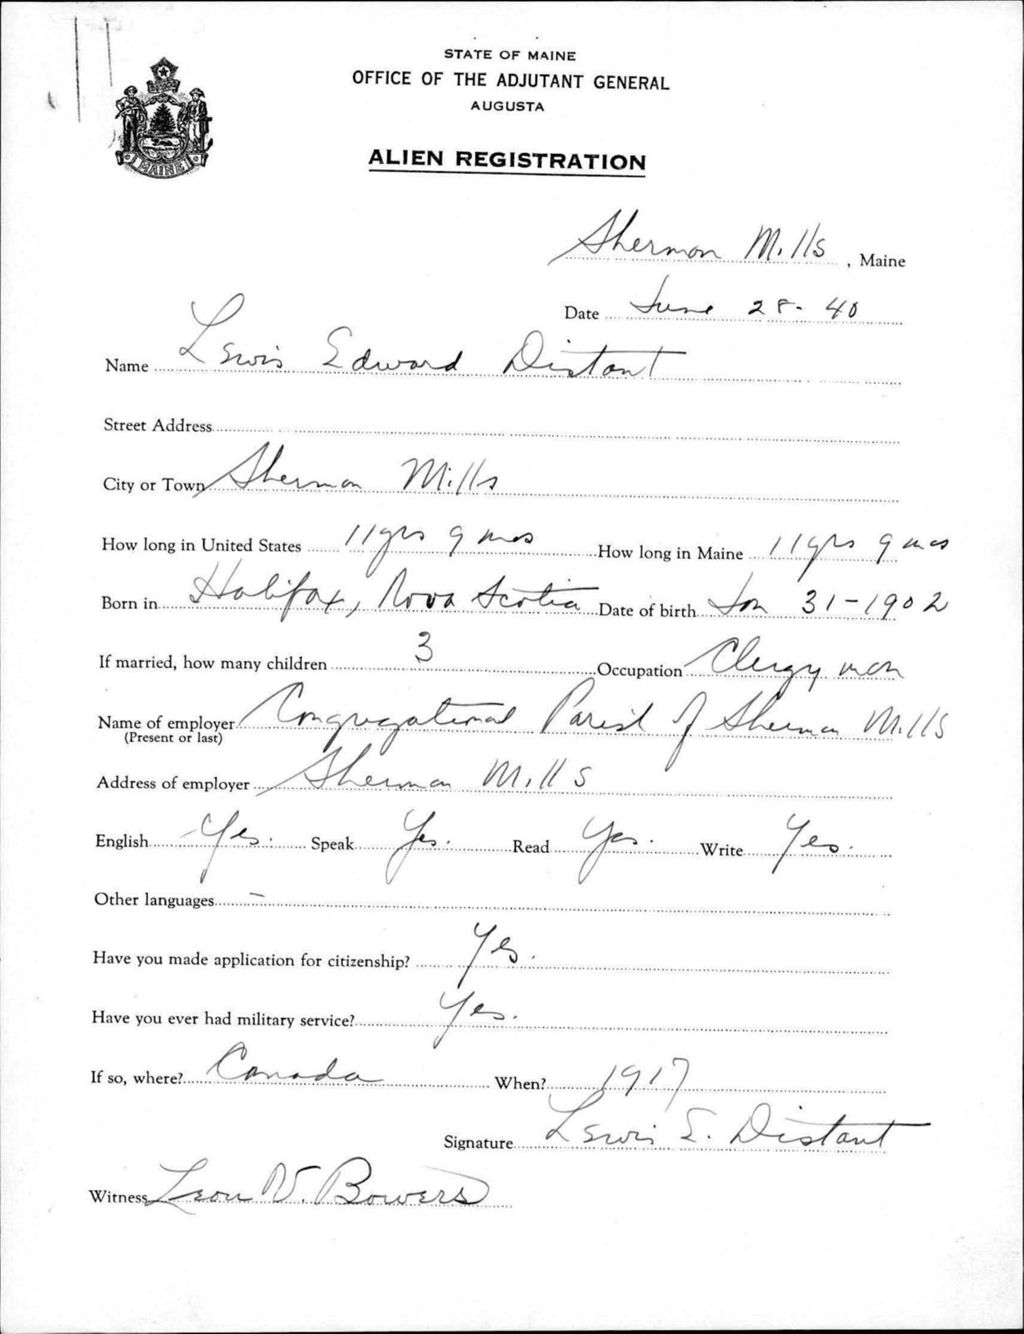 STATE OF MAINE
OFFICE OF THE ADJUTANT GENERAL
AUGUSTA
MAINE
ALIEN REGISTRATION
Sherman Mills, Maine
Date June 28-40
Name Lewis Edward Distant
Street Address
City or Town Sherman Mills
How long in United States 11yrs 9 mos How long in Maine 11yrs 9 mos
Born in Halifax, Nova Scotia Date of birth Jan 31-1902
If married, how many children 3 Occupation Clergyman
Name of employer Congregational Parish of Sherman Mills
(Present or last)
Address of employer Sherman Mills
English Yes. Speak Yes. Read Yes. Write Yes.
Other languages –
Have you made application for citizenship? Yes.
Have you ever had military service? Yes.
If so, where? Canada When? 1917
Signature Lewis E. Distant
Witness Leon W. Bowers